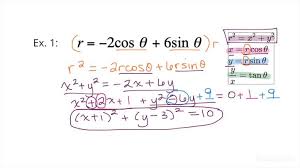 Ex. 1: (r = -2cos θ + 6sin θ) r
r² = -2rcosθ + 6rsinθ
x² + y² = -2x + 6y
x² + 2x + 1 + y² - 6y + 9 = 0 + 1 + 9
(x+1)² + (y-3)² = 10
r² = x² + y²
x = r cos θ
y = r sin θ
y/x = tan θ